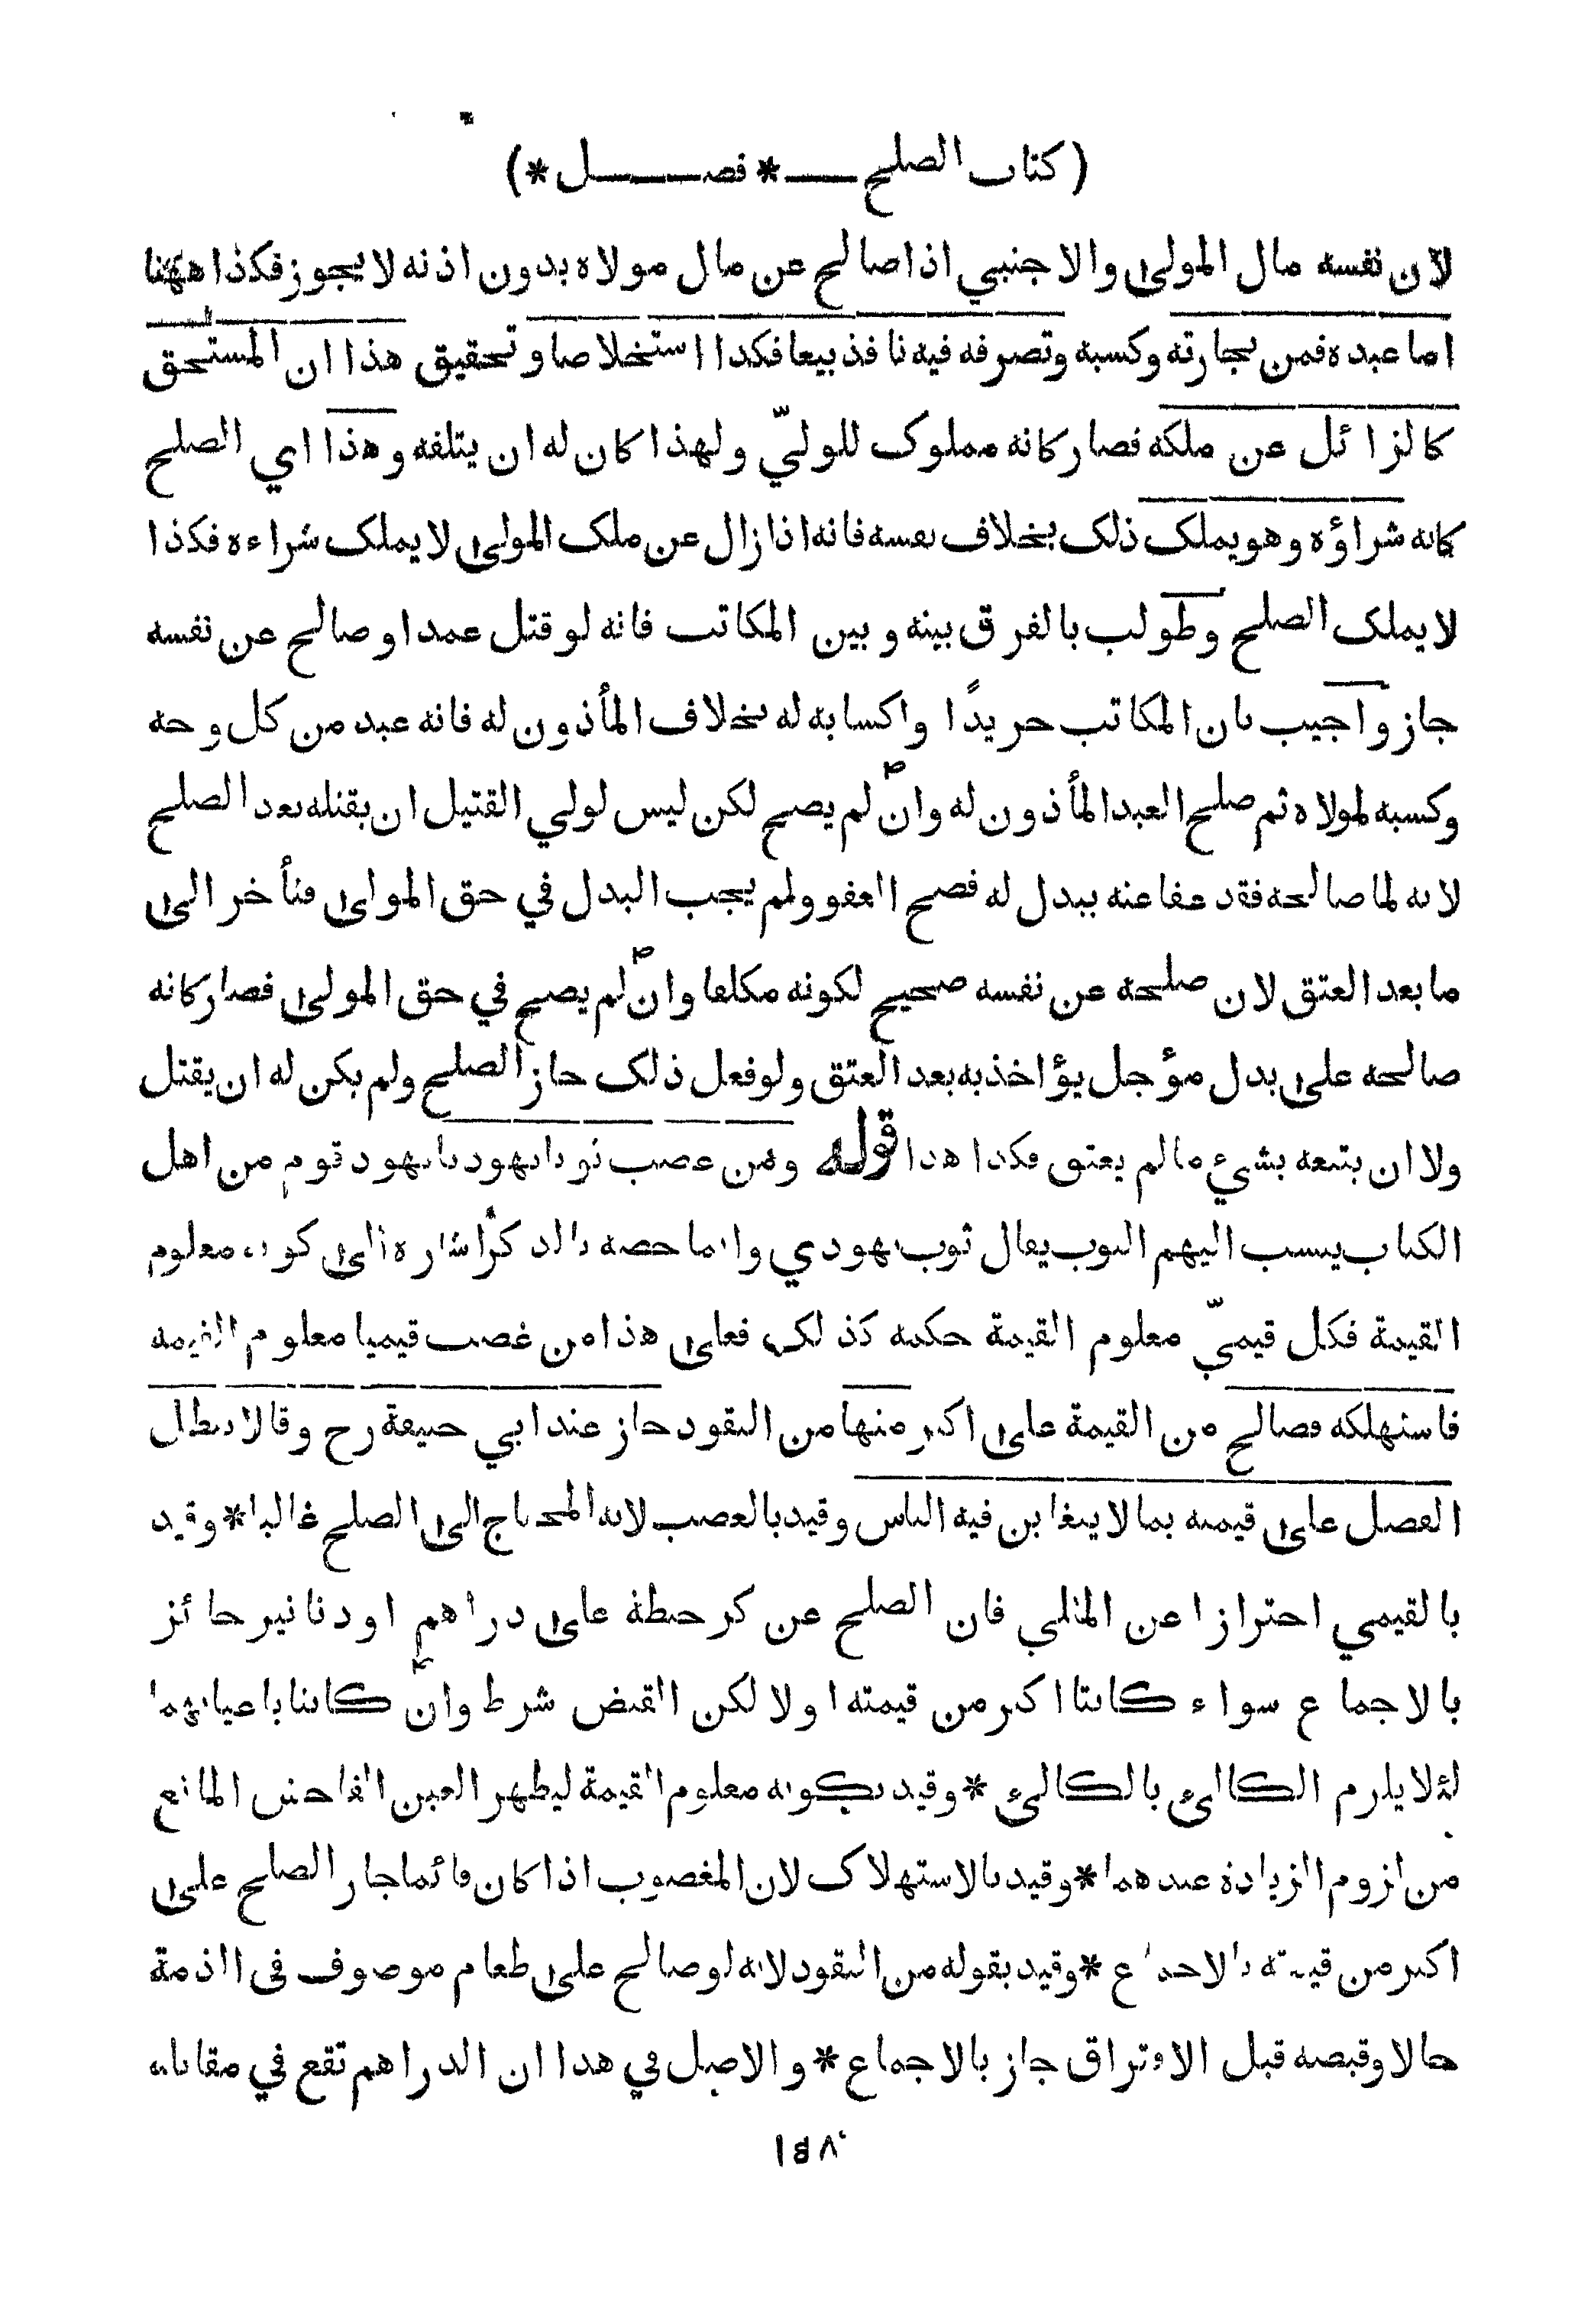 ( كتاب الصلح * فصل * )
لان نفسه مال المولى والاجنبي اذا صالح عن مال مولاه بدون اذنه لا يجوز فكذا ههنا
اما عبده فمن تجارته وكسبه وتصرفه فيه نافذ بيعا فكذا استخلاصا وتحقيق هذا ان المستحق
كالزائل عن ملكه فصار كانه مملوك للوليّ ولهذا كان له ان يتلفه وهذا اي الصلح
كانه شراؤه وهو يملك ذلك بخلاف نفسه فانه اذا زال عن ملك المولى لا يملك شراءه فكذا
لا يملك الصلح وطولب بالفرق بينه وبين المكاتب فانه لو قتل عمدا وصالح عن نفسه
جاز واجيب بان المكاتب حر يدًا واكسابه له بخلاف المأذون له فانه عبد من كل وجه
وكسبه لمولاه ثم صلح العبد المأذون له وان لم يصح لكن ليس لولي القتيل ان يقتله بعد الصلح
لانه لما صالحه فقد عفا عنه ببدل له فصح العفو ولم يجب البدل في حق المولى فتأخر الى
ما بعد العتق لان صلحه عن نفسه صحيح لكونه مكلفا وان لم يصح في حق المولى فصار كانه
صالحه على بدل مؤجل يؤاخذ به بعد العتق ولو فعل ذلك جاز الصلح ولم يكن له ان يقتل
ولا ان يتبعه بشيء ما لم يعتق فكذا هذا قوله ومن غصب ثوبا يهوديا يهود قوم من اهل
الكتاب ينسب اليهم الثوب يقال ثوب يهودي وانما خصه بالذكر اشارة الى كونه معلوم
القيمة فكل قيميّ معلوم القيمة حكمه كذلك فعلى هذا من غصب قيميا معلوم القيمة
فاستهلكه فصالح من القيمة على اكثر منها من النقود جاز عند ابي حنيفة رح وقالا يبطل
الفضل على قيمته بما لا يتغابن فيه الناس وقيد بالغصب لانه المحتاج الى الصلح غالبا * وقيد
بالقيمي احترازا عن المثلي فان الصلح عن كر حنطة على دراهم او دنانير جائز
بالاجماع سواء كانتا اكثر من قيمته اولا لكن القبض شرط وان كانتا باعيانهما
لئلا يلزم الكالئ بالكالئ * وقيد بكونه معلوم القيمة ليظهر الغبن الفاحش المانع
من لزوم الزيادة عندهما * وقيد بالاستهلاك لان المغصوب اذا كان قائما جاز الصلح على
اكثر من قيمته بالاجماع * وقيد بقوله من النقود لانه لو صالح على طعام موصوف في الذمة
حالا وقبضه قبل الافتراق جاز بالاجماع * والاصل في هذا ان الدراهم تقع في مقابلة